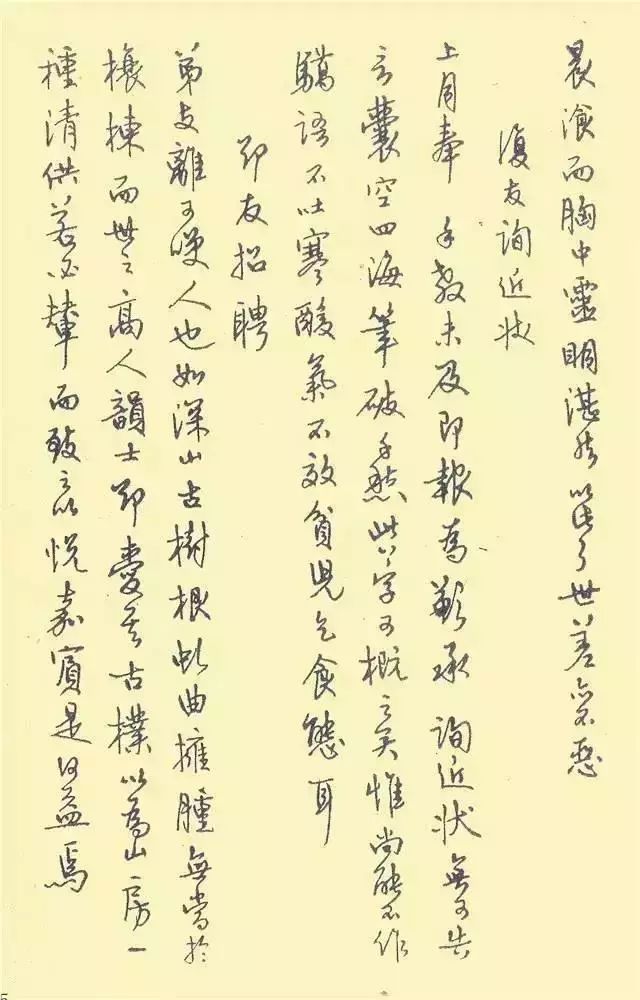 晨湌而胸中靈明湛然以此了世差亦不惡
復友詢近狀
上月奉 手教未及即報為歉承詢近狀無可告
言囊空四海筆破千愁此八字可概之矣惟尚能不作
驕語不吐寒酸氣不效貧兒乞食態耳
卻友招聘
弟支離可哂人也如深山古樹根虬曲擁腫無當於
榱棟而世之高人韻士卻愛其古樸以為山房一
種清供若必輦而致之以悅嘉賓是何益焉